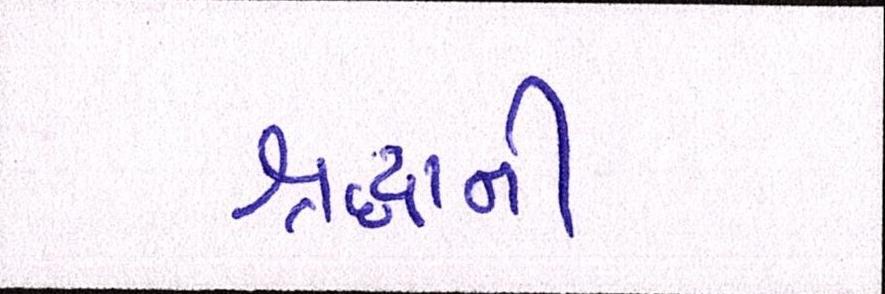 શ્રદ્ધાની